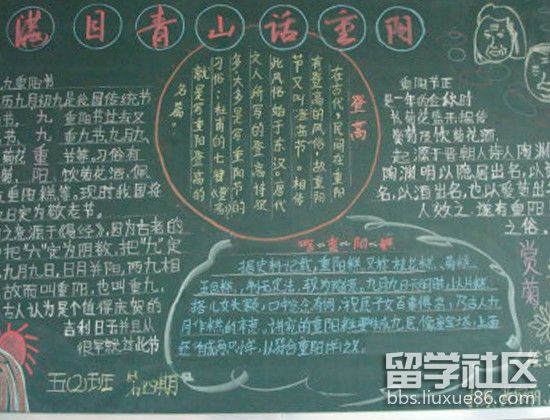 满目青山话重阳
九重阳节
历九月初九是我国传统节
节, 九 重阳节其义
节 九 重九节九月九
菊花 重 节等。习俗有
菊赏 阳、饮菊花酒、佩
重阳糕等。现时我国将
日定为敬老节。
之意源于《易经》，因为古老的
中把"六"定为阴数，把"九"定
九月九日，日月并阳，两九相
故而叫重阳，也叫重九，
古人认为是个值得庆贺的
吉利日子并且从
很早就过此节
登高
在古代，民间在重阳
有登高的风俗，故重阳
节又叫登高节。相传
此风俗始于东汉。唐代
文人所写的登高诗很
多，大多是写重阳节的
习俗；杜甫的七律《登高》
就是写重阳登高的
名篇。
重阳节正
是一年的金秋时
赏菊及饮菊花酒，
起 源于晋朝大诗人陶渊
陶渊明以隐居出名，以
名，以酒出名，也以爱菊出名
人效之，遂有重阳
之俗。
赏菊
吃重阳糕
据史料记载，重阳糕又称花糕、菊糕、
五色糕，制无定法，较为随意。九月九日天明时，以片糕
搭儿女头额，口中念念有词，祝愿子女百事俱高，乃古人九
月作糕的本意。讲究的重阳糕要作成九层，像座宝塔，上面
还作成两只小羊，以符合重阳(羊)之义。
五(2)班
第四期
留学社区
bbs.liuxue86.com